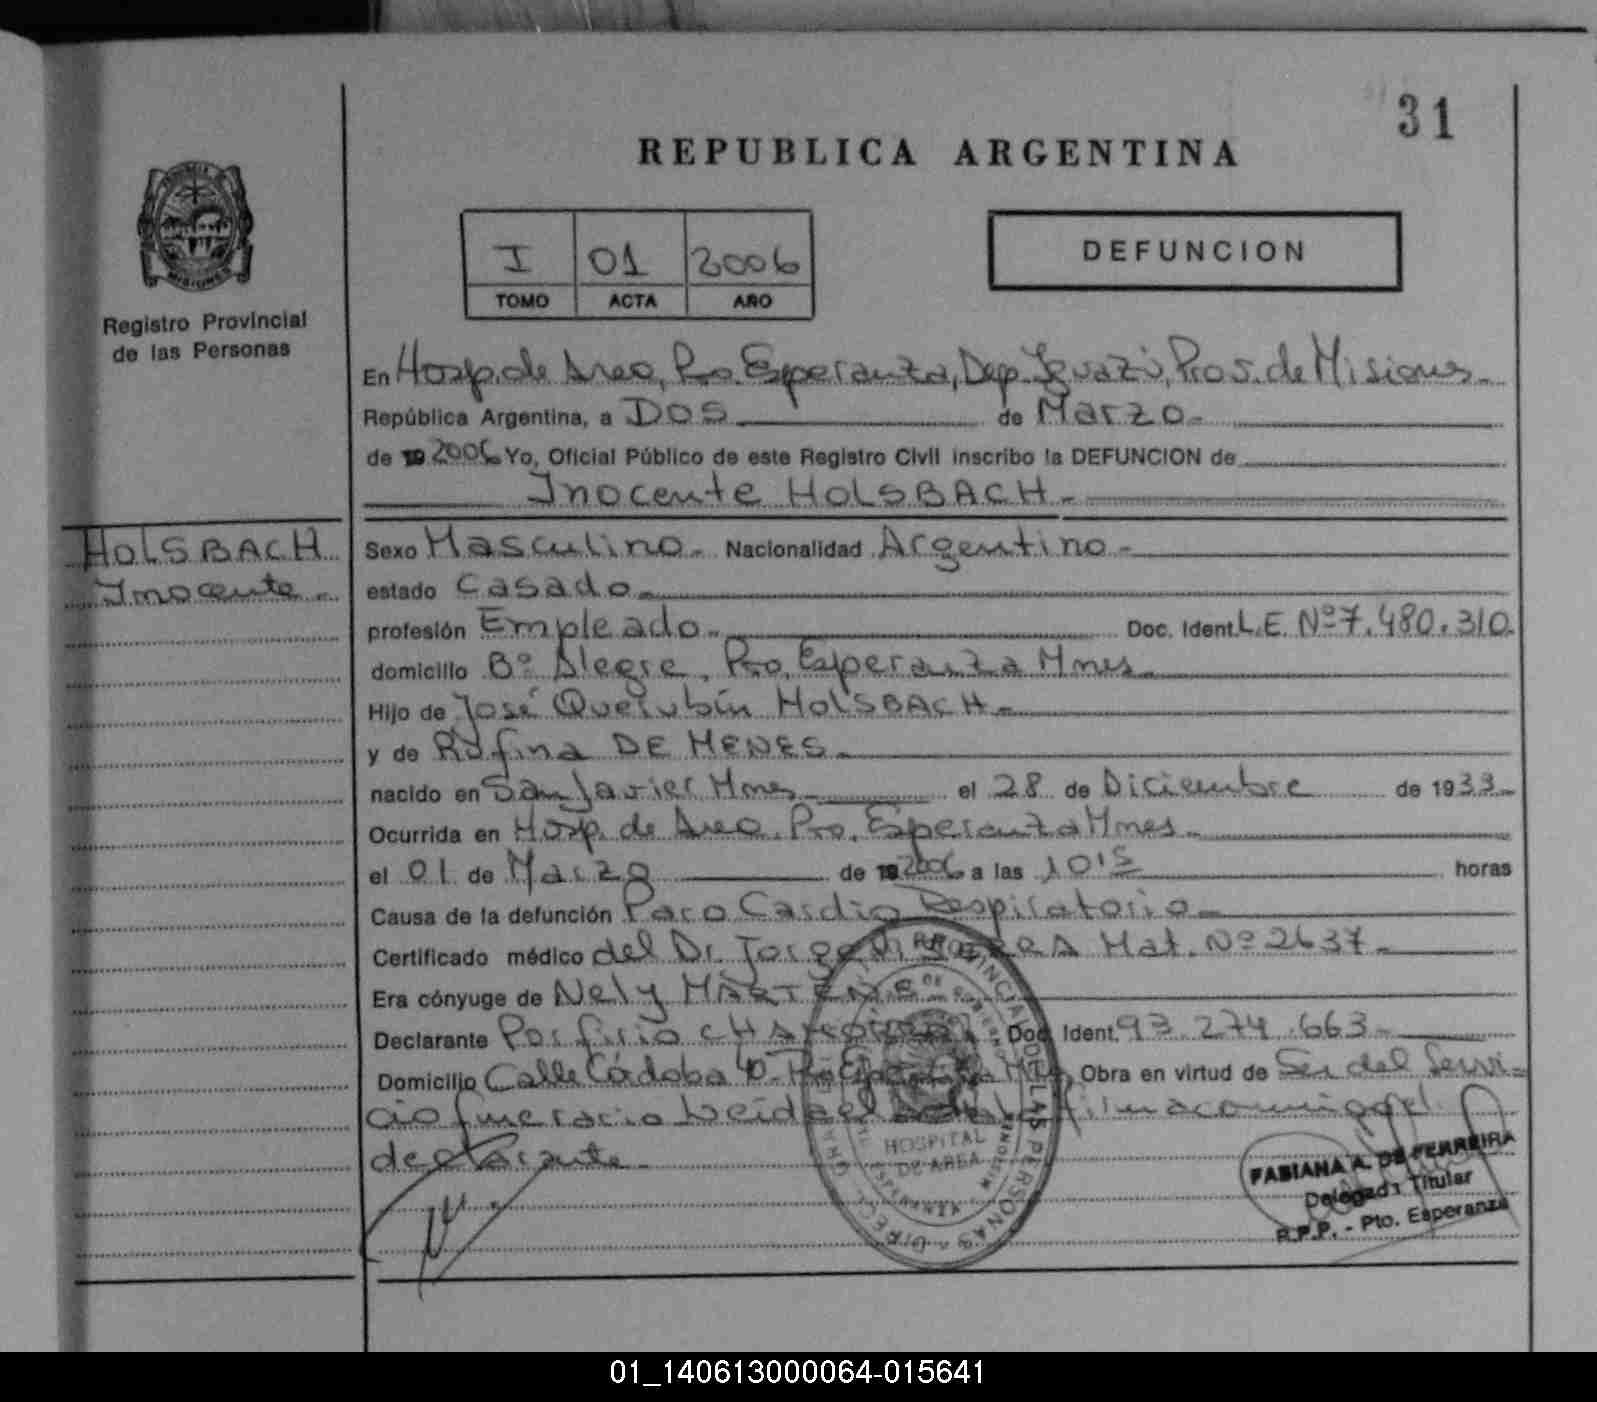 31
REPUBLICA ARGENTINA
I 01 2006
TOMO ACTA AÑO
DEFUNCION
MISIONES
Registro Provincial
de las Personas
En Hosp. de Area, Pto. Esperanza, Dep. Iguazú, Prov. de Misiones.
República Argentina, a DOS de Marzo.
de 19 2006 Yo, Oficial Público de este Registro Civil inscribo la DEFUNCION de
Inocente HOLSBACH.
HOLSBACH
Inocente.
Sexo Masculino. Nacionalidad Argentino.
estado Casado.
profesión Empleado. Doc. Ident. L.E. Nº 7.480.310.
domicilio Bº Alegre, Pto. Esperanza Mnes.
Hijo de José Querubín HOLSBACH.
y de Rufina DE MENES.
nacido en San Javier Mnes el 28 de Diciembre de 1933.
Ocurrida en Hosp. de Area. Pto. Esperanza Mnes.
el 01 de Marzo de 19 2006 a las 10'15 horas
Causa de la defunción Paro Cardio Respiratorio.
Certificado médico del Dr. Jorge Mat. Nº 2637.
Era cónyuge de Nely
Declarante Porfirio Doc. Ident. 93.274.663.
Domicilio Calle Córdoba Obra en virtud de Ser del Servi-
cio funerario Leída el acta firma conmigo el
declarante.
HOSPITAL
DE AREA
FABIANA A. DE FERREIRA
Delegada Titular
R.P.P. - Pto. Esperanza
01_140613000064-015641